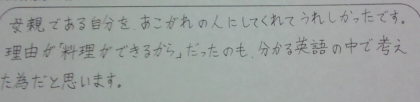 母親である自分を、あこがれの人にしてくれてうれしかったです。
理由が「料理ができるから」だったのも、分かる英語の中で考え
た為だと思います。